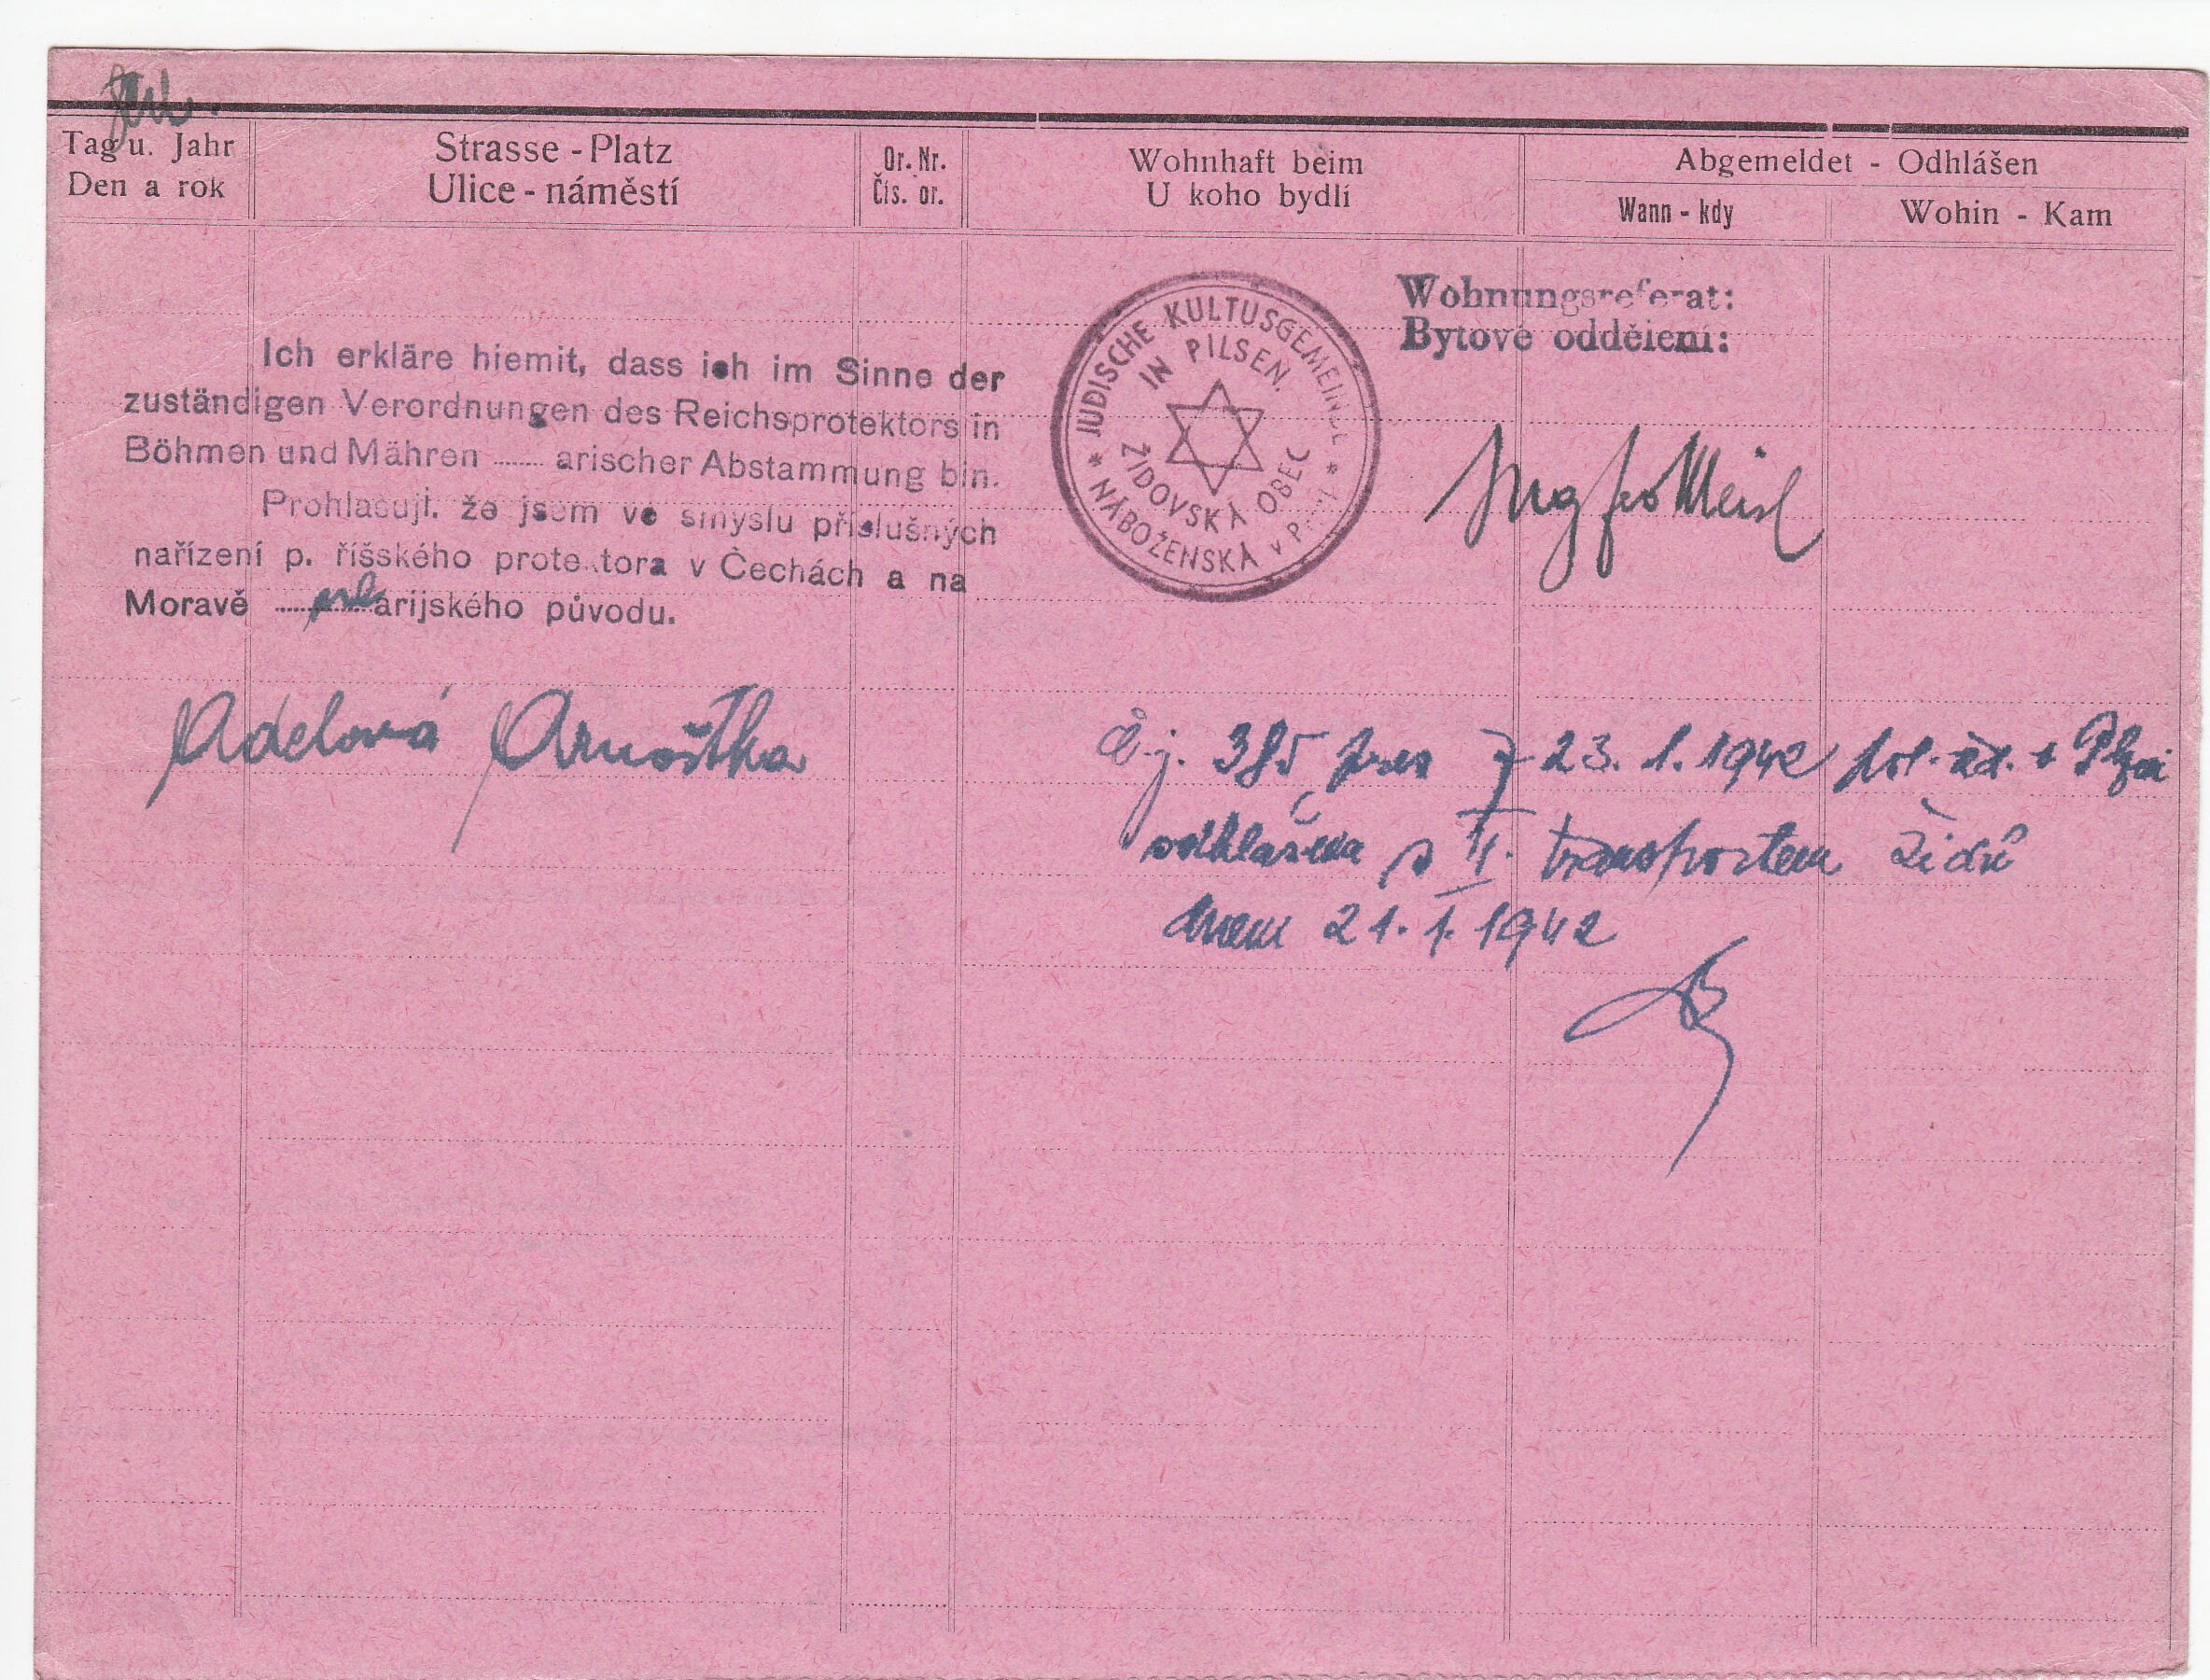 Tag u. Jahr
Den a rok
Strasse - Platz
Ulice - náměstí
Or. Nr.
Čís. or.
Wohnhaft beim
U koho bydlí
Abgemeldet - Odhlášen
Wann - kdy
Wohin - Kam
Ich erkläre hiemit, dass ich im Sinne der
zuständigen Verordnungen des Reichsprotektors in
Böhmen und Mähren ........ arischer Abstammung bin.
Prohlašuji, že jsem ve smyslu příslušných
nařízení p. říšského protektora v Čechách a na
Moravě ............ arijského původu.
JÜDISCHE KULTUSGEMEINDE
IN PILSEN.
ŽIDOVSKÁ OBEC
NÁBOŽENSKÁ v
Wohnungsreferat:
Bytové oddělení:
Adelová Arnoštka
Č.j. 385 pres z 23. 1. 1942 pol. řed. v Plzni
odhlášena s II. transportem židů
dnem 21. 1. 1942